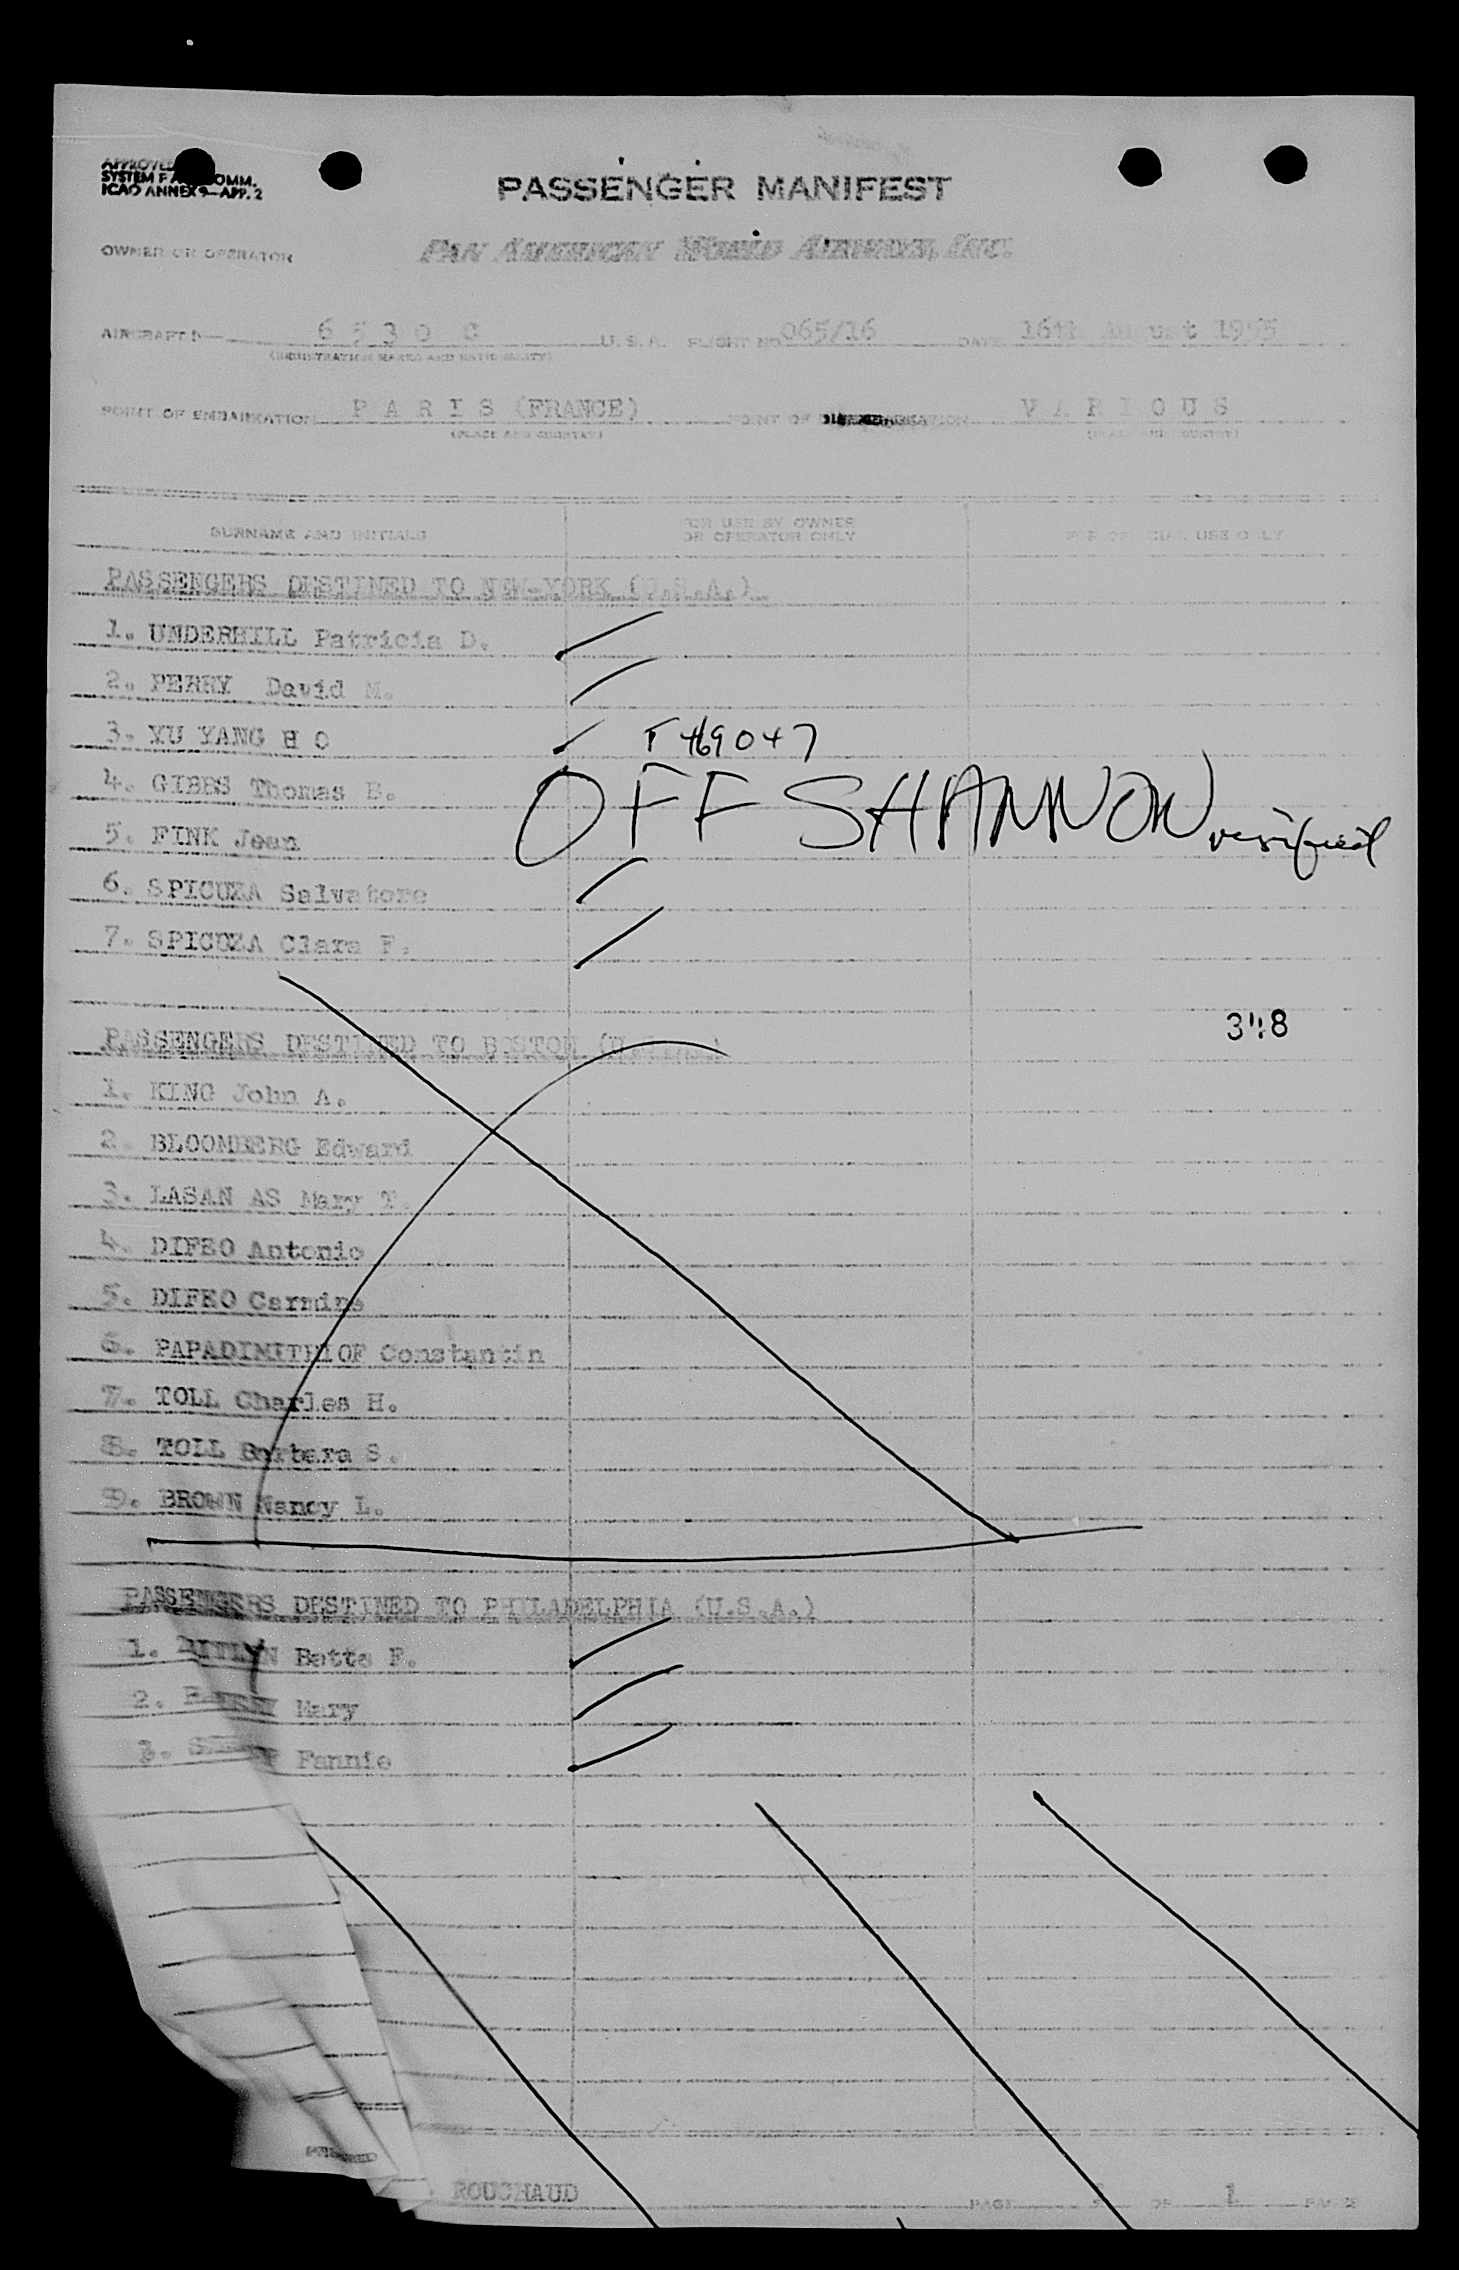 SYSTEM F OMM.
ICAO ANNEX 9—APP. 2
PASSENGER MANIFEST
OWNER OR OPERATOR PAN AMERICAN WORLD AIRWAYS, INC.
AIRCRAFT 6530 C U. S. A. FLIGHT NO. 065/16 DATE 16th August 1955
(REGISTRATION MARKS AND NATIONALITY)
POINT OF EMBARKATION P A R I S (FRANCE) POINT OF V A R I O U S
(PLACE AND COUNTRY) (PLACE AND COUNTRY)
SURNAME AND INITIALS FOR USE BY OWNER OR OPERATOR ONLY FOR OFFICIAL USE ONLY
PASSENGERS DESTINED TO NEW-YORK (U.S.A.)
1. UNDERHILL Patricia D.
2. PERRY David M.
3. XU YANG H O T 469047
4. GIBBS Thomas E. OFF SHANNON verified
5. FINK Jean
6. SPICUZA Salvatore
7. SPICUZA Clara F.
PASSENGERS DESTINED TO BOSTON
1. KING John A.
2. BLOOMBERG Edward
3. LASAN AS Mary T.
4. DIFEO Antonio
5. DIFEO Carmine
6. Constantin
7. TOLL Charles H.
8. TOLL Barbara S.
9. BROWN Nancy L.
PASSENGERS DESTINED TO PHILADELPHIA (U.S.A.)
1. Batts F.
2. Mary
3. Fannie
ROUCHAUD PAGE OF 1 PAGES